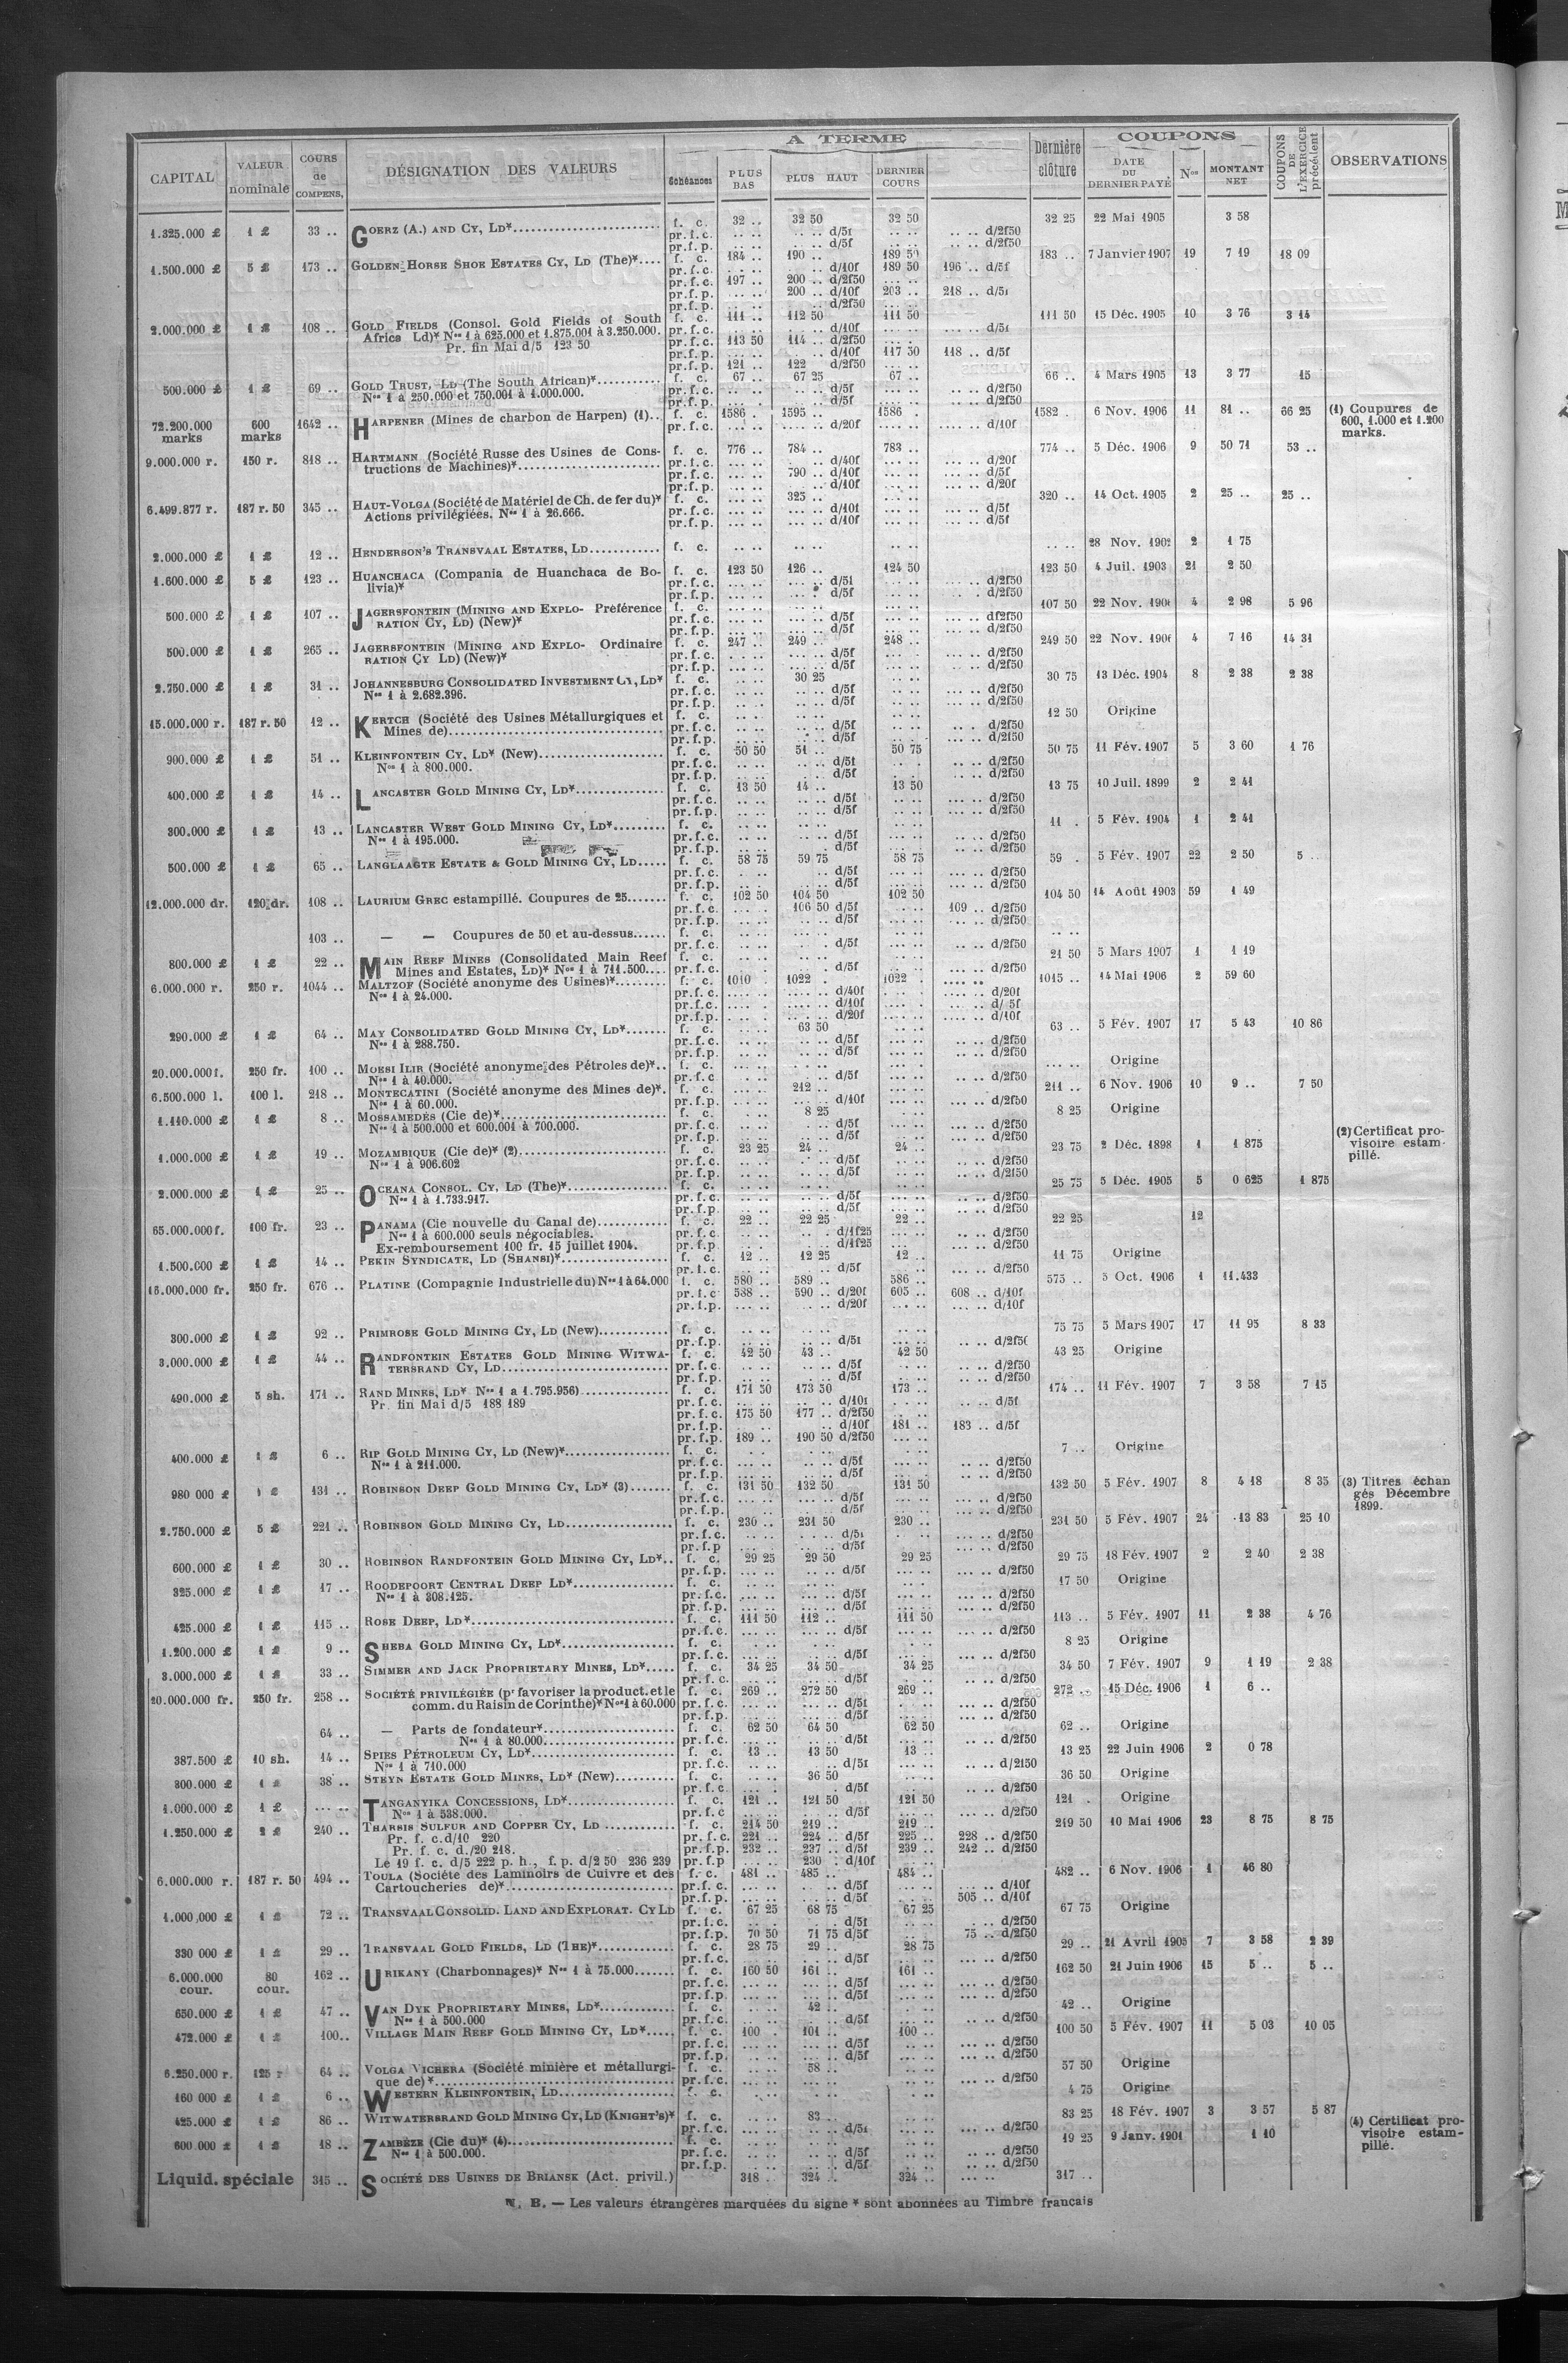 CAPITAL | VALEUR nominale | COURS de COMPENS. | DÉSIGNATION DES VALEURS | A TERME | Échéances | PLUS BAS | PLUS HAUT | DERNIER COURS | Dernière clôture | COUPONS | DATE DU DERNIER PAYÉ | Nos | MONTANT NET | COUPONS DE L'EXERCICE précédent | OBSERVATIONS
1.325.000 £ | 1 £ | 33 .. | GOERZ (A.) AND CY, LD* | f. c. | 32 .. | 32 50 | 32 50 | 32 25 | 22 Mai 1905 | 3 58
1.500.000 £ | 5 £ | 173 .. | GOLDEN HORSE SHOE ESTATES CY, LD (The)* | f. c. | 184 .. | 190 .. | 189 50 | 183 .. | 7 Janvier 1907 | 19 | 7 19 | 18 09
pr.f.c. | .. d/10f | 189 50 | 196 .. d/5f
pr.f.c. | 197 .. | 200 .. d/2f50
pr.f.p. | 200 .. d/10f | 203 .. | 218 .. d/5f
2.000.000 £ | 1 £ | 108 .. | GOLD FIELDS (Consol. Gold Fields of South | f. c. | 111 .. | 112 50 | 111 50 | 111 50 | 15 Déc. 1905 | 10 | 3 76 | 3 14
Africa Ld)* Nos 1 à 625.000 et 1.875.001 à 3.250.000. | pr.f.c. | 113 50 | 114 .. d/2f50
Pr. fin Mai d/5 123 50 | pr.f.p. | .. d/10f | 117 50 | 118 .. d/5f
121 .. | 122 d/2f50
500.000 £ | 1 £ | 69 .. | GOLD TRUST, LD (The South African)* | f. c. | 67 .. | 67 25 | 67 .. | 66 .. | 4 Mars 1905 | 13 | 3 77 | 15
Nos 1 à 250.000 et 750.001 à 1.000.000.
72.200.000 marks | 600 marks | 1642 .. | HARPENER (Mines de charbon de Harpen) (1) | f. c. | 1586 . | 1595 .. | 1586 . | 1582 . | 6 Nov. 1906 | 11 | 81 .. | 66 25 | (1) Coupures de 600, 1.000 et 1.200 marks.
9.000.000 r. | 150 r. | 818 .. | HARTMANN (Société Russe des Usines de Cons- | f. c. | 776 .. | 784 .. | 783 .. | 774 .. | 5 Déc. 1906 | 9 | 50 71 | 53 ..
tructions de Machines)* | pr.f.c. | 790 .. d/10f
6.499.877 r. | 187 r. 50 | 345 .. | HAUT-VOLGA (Société de Matériel de Ch. de fer du)* | f. c. | 325 .. | 320 .. | 14 Oct. 1905 | 2 | 25 .. | 25 ..
Actions privilégiées. Nos 1 à 26.666.
2.000.000 £ | 1 £ | 12 .. | HENDERSON'S TRANSVAAL ESTATES, LD | f. c. | 28 Nov. 1902 | 2 | 1 75
1.600.000 £ | 5 £ | 123 .. | HUANCHACA (Compania de Huanchaca de Bo- | f. c. | 123 50 | 126 .. | 124 50 | 123 50 | 4 Juil. 1903 | 21 | 2 50
livia)*
500.000 £ | 1 £ | 107 .. | JAGERSFONTEIN (MINING AND EXPLO- Préférence | f. c. | 107 50 | 22 Nov. 1906 | 4 | 2 98 | 5 96
RATION CY, LD) (New)*
500.000 £ | 1 £ | 265 .. | JAGERSFONTEIN (MINING AND EXPLO- Ordinaire | f. c. | 247 .. | 249 .. | 248 .. | 249 50 | 22 Nov. 1906 | 4 | 7 16 | 14 31
RATION CY LD) (New)*
2.750.000 £ | 1 £ | 31 .. | JOHANNESBURG CONSOLIDATED INVESTMENT CY, LD* | f. c. | 30 25 | 30 75 | 13 Déc. 1904 | 8 | 2 38 | 2 38
Nos 1 à 2.682.396.
15.000.000 r. | 187 r. 50 | 12 .. | KERTCH (Société des Usines Métallurgiques et | f. c. | 12 50 | Origine
Mines de)
900.000 £ | 1 £ | 51 .. | KLEINFONTEIN CY, LD* (New) | f. c. | 50 50 | 51 .. | 50 75 | 50 75 | 11 Fév. 1907 | 5 | 3 60 | 1 76
Nos 1 à 800.000.
400.000 £ | 1 £ | 14 .. | LANCASTER GOLD MINING CY, LD* | f. c. | 13 50 | 14 .. | 13 50 | 13 75 | 10 Juil. 1899 | 2 | 2 41
300.000 £ | 1 £ | 13 .. | LANCASTER WEST GOLD MINING CY, LD* | f. c. | 11 . | 5 Fév. 1904 | 1 | 2 41
Nos 1 à 195.000.
500.000 £ | 1 £ | 65 .. | LANGLAAGTE ESTATE & GOLD MINING CY, LD | f. c. | 58 75 | 59 75 | 58 75 | 59 . | 5 Fév. 1907 | 22 | 2 50 | 5 ..
12.000.000 dr. | 120 dr. | 108 .. | LAURIUM GREC estampillé. Coupures de 25 | f. c. | 102 50 | 104 50 | 102 50 | 104 50 | 14 Août 1903 | 59 | 1 49
pr.f.c. | 106 50 d/5f | 109 .. d/2f50
103 .. | — — Coupures de 50 et au-dessus | f. c.
800.000 £ | 1 £ | 22 .. | MAIN REEF MINES (Consolidated Main Reef | f. c. | 21 50 | 5 Mars 1907 | 1 | 1 19
Mines and Estates, LD)* Nos 1 à 711.500
6.000.000 r. | 250 r. | 1044 .. | MALTZOF (Société anonyme des Usines)* | f. c. | 1010 . | 1022 . | 1022 . | 1015 .. | 14 Mai 1906 | 2 | 59 60
Nos 1 à 24.000.
290.000 £ | 1 £ | 64 .. | MAY CONSOLIDATED GOLD MINING CY, LD* | f. c. | 63 50 | 63 .. | 5 Fév. 1907 | 17 | 5 43 | 10 86
Nos 1 à 288.750.
20.000.000 f. | 250 fr. | 100 .. | MOESI ILIR (Société anonyme des Pétroles de)* | f. c. | Origine
Nos 1 à 40.000.
6.500.000 l. | 100 l. | 218 .. | MONTECATINI (Société anonyme des Mines de)* | f. c. | 212 .. | 211 .. | 6 Nov. 1906 | 10 | 9 .. | 7 50
Nos 1 à 60.000.
1.110.000 £ | 1 £ | 8 .. | MOSSAMEDES (Cie de)* | f. c. | 8 25 | 8 25 | Origine
Nos 1 à 500.000 et 600.001 à 700.000.
1.000.000 £ | 1 £ | 19 .. | MOZAMBIQUE (Cie de)* (2) | f. c. | 23 25 | 24 .. | 24 .. | 23 75 | 2 Déc. 1898 | 1 | 1 875 | (2) Certificat provisoire estampillé.
Nos 1 à 906.602
2.000.000 £ | 1 £ | 25 .. | OCEANA CONSOL. CY, LD (The)* | f. c. | 25 75 | 5 Déc. 1905 | 5 | 0 625 | 1 875
Nos 1 à 1.733.917.
65.000.000 f. | 100 fr. | 23 .. | PANAMA (Cie nouvelle du Canal de) | f. c. | 22 .. | 22 25 | 22 .. | 22 25 | 12
Nos 1 à 600.000 seuls négociables.
Ex-remboursement 100 fr. 15 juillet 1904.
1.500.000 £ | 1 £ | 14 .. | PEKIN SYNDICATE, LD (SHANSI)* | f. c. | 12 .. | 12 25 | 12 .. | 11 75 | Origine
16.000.000 fr. | 250 fr. | 676 .. | PLATINE (Compagnie Industrielle du) Nos 1 à 64.000 | f. c. | 580 .. | 589 .. | 586 .. | 575 .. | 5 Oct. 1906 | 1 | 11.433
pr.f.c | 588 .. | 590 .. d/20f | 605 .. | 608 .. d/10f
300.000 £ | 1 £ | 92 .. | PRIMROSE GOLD MINING CY, LD (New) | f. c. | 75 75 | 5 Mars 1907 | 17 | 11 95 | 8 33
3.000.000 £ | 1 £ | 44 .. | RANDFONTEIN ESTATES GOLD MINING WITWA- | f. c. | 42 50 | 43 .. | 42 50 | 43 25 | Origine
TERSRAND CY, LD
490.000 £ | 5 sh. | 171 .. | RAND MINES, LD* Nos 1 a 1.795.956) | f. c. | 171 50 | 173 50 | 173 .. | 174 .. | 11 Fév. 1907 | 7 | 3 58 | 7 15
Pr. fin Mai d/5 188 189
pr.f.c. | 175 50 | 177 .. d/2f50
pr.f.p. | .. d/10f | 181 .. | 183 .. d/5f
pr.f.p. | 189 .. | 190 50 d/2f50
400.000 £ | 1 £ | 6 .. | RIP GOLD MINING CY, LD (New)* | f. c. | 7 .. | Origine
Nos 1 à 211.000.
980 000 £ | 1 £ | 131 .. | ROBINSON DEEP GOLD MINING CY, LD* (3) | f. c. | 131 50 | 132 50 | 131 50 | 132 50 | 5 Fév. 1907 | 8 | 4 18 | 8 35 | (3) Titres échangés Décembre 1899.
2.750.000 £ | 5 £ | 221 .. | ROBINSON GOLD MINING CY, LD | f. c. | 230 .. | 231 50 | 230 .. | 231 50 | 5 Fév. 1907 | 24 | 13 83 | 25 10
600.000 £ | 1 £ | 30 .. | ROBINSON RANDFONTEIN GOLD MINING CY, LD* | f. c. | 29 25 | 29 50 | 29 25 | 29 75 | 18 Fév. 1907 | 2 | 2 40 | 2 38
325.000 £ | 1 £ | 17 .. | ROODEPOORT CENTRAL DEEP LD* | f. c. | 17 50 | Origine
Nos 1 à 308.125.
425.000 £ | 1 £ | 115 .. | ROSE DEEP, LD* | f. c. | 111 50 | 112 .. | 111 50 | 113 .. | 5 Fév. 1907 | 11 | 2 38 | 4 76
1.200.000 £ | 1 £ | 9 .. | SHEBA GOLD MINING CY, LD* | f. c. | 8 25 | Origine
3.000.000 £ | 1 £ | 33 .. | SIMMER AND JACK PROPRIETARY MINES, LD* | f. c. | 34 25 | 34 50 | 34 25 | 34 50 | 7 Fév. 1907 | 9 | 1 19 | 2 38
20.000.000 fr. | 250 fr. | 258 .. | SOCIÉTÉ PRIVILÉGIÉE (pr favoriser la product. et le | f. c. | 269 .. | 272 50 | 269 .. | 272 .. | 15 Déc. 1906 | 1 | 6 ..
comm. du Raisin de Corinthe)* Nos 1 à 60.000
64 .. | — Parts de fondateur* | f. c. | 62 50 | 64 50 | 62 50 | 62 .. | Origine
Nos 1 à 80.000
387.500 £ | 10 sh. | 14 .. | SPIES PÉTROLEUM CY, LD* | f. c. | 13 .. | 13 50 | 13 .. | 13 25 | 22 Juin 1906 | 2 | 0 78
Nos 1 à 710.000
300.000 £ | 1 £ | 38 .. | STEYN ESTATE GOLD MINES, LD* (New) | f. c. | 36 50 | 36 50 | Origine
1.000.000 £ | 1 £ | TANGANYIKA CONCESSIONS, LD* | f. c. | 121 .. | 121 50 | 121 50 | 121 . | Origine
Nos 1 à 538.000.
1.250.000 £ | 2 £ | 240 .. | THARSIS SULFUR AND COPPER CY, LD | f. c. | 214 50 | 219 .. | 219 .. | 219 50 | 10 Mai 1906 | 23 | 8 75 | 8 75
Pr. f. c. d/10 220 | pr. f. c. | 221 .. | 224 .. d/5f | 225 .. | 228 .. d/2f50
Pr. f. c. d./20 218. | pr.f.p. | 232 .. | 237 .. d/5f | 239 .. | 242 .. d/2f50
Le 19 f. c. d/5 222 p. h., f. p. d/2 50 236 239 | pr.f.p | 230 . d/10f
6.000.000 r. | 187 r. 50 | 494 .. | TOULA (Société des Laminoirs de Cuivre et des | f. c. | 481 .. | 485 .. | 484 .. | 482 .. | 6 Nov. 1906 | 1 | 46 80
Cartoucheries de)* | pr.f.p. | 505 .. d/10f
1.000.000 £ | 1 £ | 72 .. | TRANSVAAL CONSOLID. LAND AND EXPLORAT. CY LD | f. c. | 67 25 | 68 75 | 67 25 | 67 75 | Origine
pr.f.p. | 70 50 | 71 75 d/5f | 75 .. d/2f50
330 000 £ | 1 £ | 29 .. | TRANSVAAL GOLD FIELDS, LD (THE)* | f. c. | 28 75 | 29 .. | 28 75 | 29 .. | 21 Avril 1905 | 7 | 3 58 | 2 39
6.000.000 cour. | 80 cour. | 162 .. | URIKANY (Charbonnages)* Nos 1 à 75.000 | f. c. | 160 50 | 161 .. | 161 .. | 162 50 | 21 Juin 1906 | 15 | 5 .. | 5 ..
650.000 £ | 1 £ | 47 .. | VAN DYK PROPRIETARY MINES, LD* | f. c. | 42 .. | 42 .. | Origine
Nos 1 à 500.000
472.000 £ | 1 £ | 100.. | VILLAGE MAIN REEF GOLD MINING CY, LD* | f. c. | 100 . | 101 .. | 100 .. | 100 50 | 5 Fév. 1907 | 11 | 5 03 | 10 05
6.250.000 r. | 125 r | 64 .. | VOLGA VICHERA (Société minière et métallurgi- | f. c. | 58 .. | 57 50 | Origine
que de)*
160 000 £ | 1 £ | 6 .. | WESTERN KLEINFONTEIN, LD | f. c. | 4 75 | Origine
425.000 £ | 1 £ | 86 .. | WITWATERSRAND GOLD MINING CY, LD (KNIGHT'S)* | f. c. | 83 .. | 83 25 | 18 Fév. 1907 | 3 | 3 57 | 5 87
600.000 £ | 1 £ | 18 .. | ZAMBÈZE (Cie du)* (4) | f. c. | 19 25 | 9 Janv. 1901 | 1 10 | (4) Certificat provisoire estampillé.
Nos 1 à 500.000.
Liquid. spéciale | 315 .. | SOCIÉTÉ DES USINES DE BRIANSK (Act. privil.) | 318 .. | 324 .. | 324 .. | 317 ..
N. B. — Les valeurs étrangères marquées du signe * sont abonnées au Timbre français